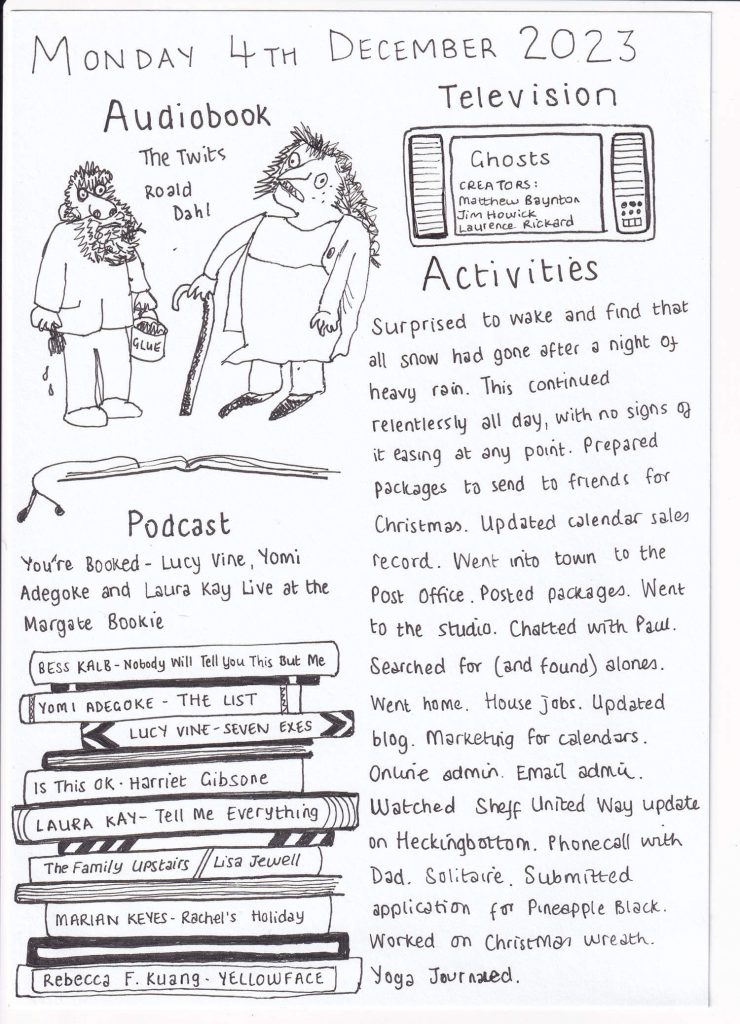 Monday 4th December 2023
Audiobook
The Twits
Roald
Dahl
GLUE
Podcast
You're Booked - Lucy Vine, Yomi
Adegoke and Laura Kay Live at the
Margate Bookie
BESS KALB - Nobody Will Tell You This But Me
YOMI ADEGOKE - THE LIST
LUCY VINE - SEVEN EXES
IS THIS OK - Harriet Gibsone
LAURA KAY - Tell Me Everything
The Family Upstairs // Lisa Jewell
MARIAN KEYES - Rachel's Holiday
Rebecca F. Kuang - YELLOWFACE
Television
Ghosts
CREATORS:
Matthew Baynton
Jim Howick
Laurence Rickard
Activities
Surprised to wake and find that
all snow had gone after a night of
heavy rain. This continued
relentlessly all day, with no signs of
it easing at any point. Prepared
packages to send to friends for
Christmas. Updated calendar sales
record. Went into town to the
Post Office. Posted packages. Went
to the studio. Chatted with Paul.
Searched for (and found) alones.
Went home. House jobs. Updated
blog. Marketing for calendars.
Online admin. Email admin.
Watched Sheff United Way update
on Heckingbottom. Phonecall with
Dad. Solitaire. Submitted
application for Pineapple Black.
Worked on Christmas wreath.
Yoga Journaled.